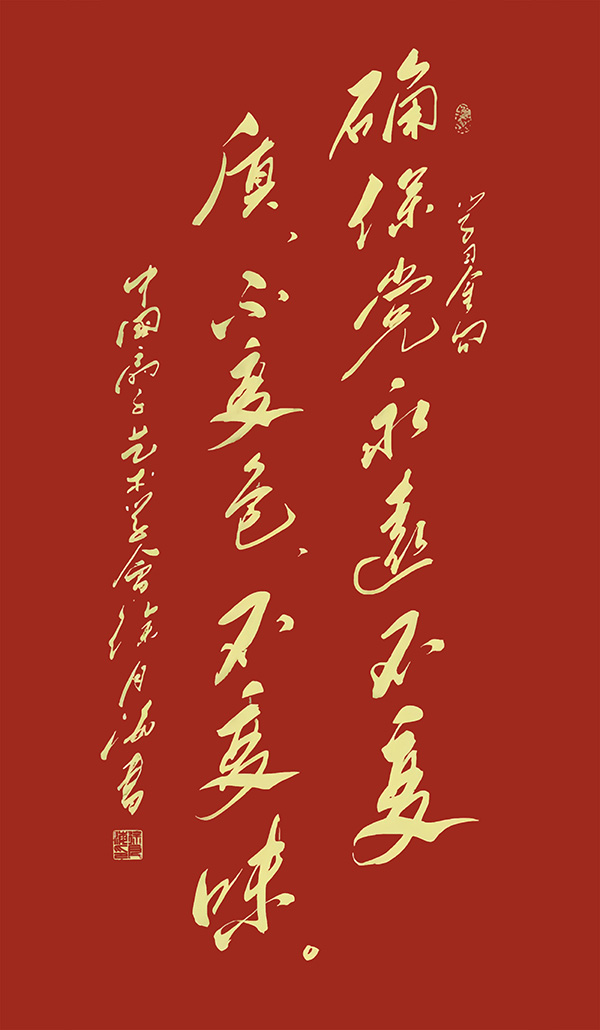 学习金句
确保党永遠不变
质、不变色、不变味。
中国扇子艺术学會徐月海書